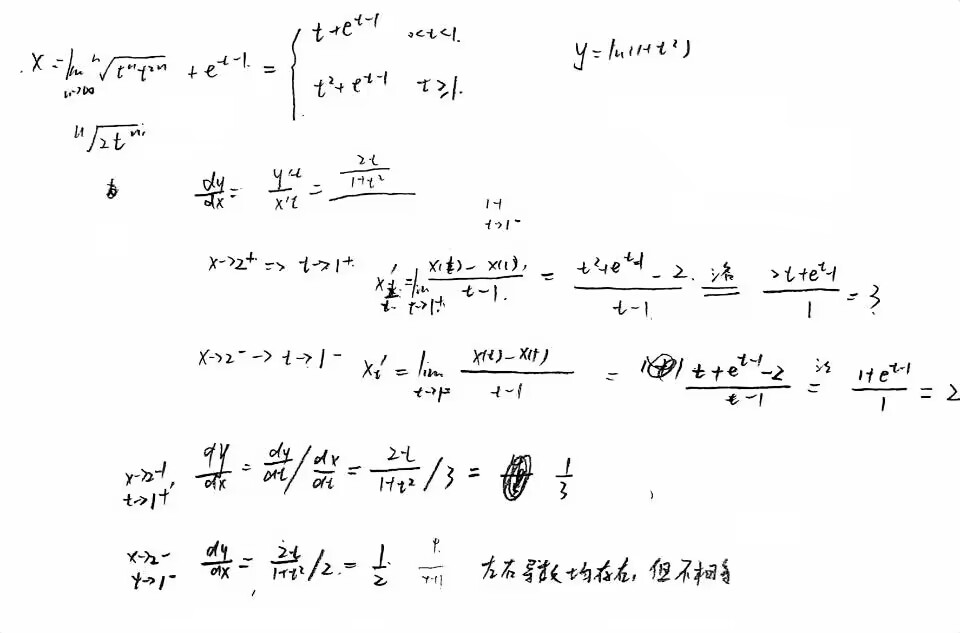 x = lim n→∞ ⁿ√(tⁿ+t²ⁿ) + e^(t-1) = { t+e^(t-1) 0<t<1. y=ln(1+t²)
t²+e^(t-1) t≥1.
ⁿ√(2tⁿ)
dy/dx = y't/x't = (2t/(1+t²))/
1-1
t→1⁻
x→2⁺ => t→1⁺ x't = lim t→1⁺ (x(t)-x(1))/(t-1) = (t²+e^(t-1)-2)/(t-1) 洛 = (2t+e^(t-1))/1 = 3
x→2⁻ → t→1⁻ x't = lim t→1⁻ (x(t)-x(1))/(t-1) = (t+e^(t-1)-2)/(t-1) 洛 = (1+e^(t-1))/1 = 2
x→2⁺, t→1⁺ dy/dx = dy/dt / dx/dt = 2t/(1+t²) /3 = 1/3
x→2⁻ t→1⁻ dy/dx = 2t/(1+t²) /2 = 1/2 左右导数均存在,但不相等